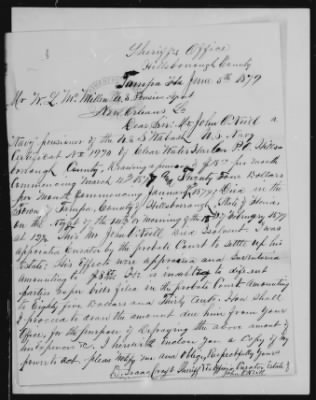 Sheriffs Office
Hillsborough County
Tampa Fla June 5th 1879
Mr W. L. McMillen U.S. Pension Agent
New Orleans La
Dear Sir. Mr John O'Neill a
Navy pensioner of the U S Navy
Certificate No 1970 of Clear Water Harbor P.O. Hills
borough County, Drawing a pension of per month
Commencing March 4th &, Twenty four Dollars
per Month Commencing January 1879, Died in the
Town of Tampa, County of Hillsborough, State of Florida
on the Night of the 14th or morning of the 15th of February 1879
at 12 Mr John O'Neill Died Insolvent. I was
appointed Curator by the probate Court to settle up his
Estate, His Effects were appraised and Inventoried
amounting to He is indebted to different
parties as per Bills filed in the probate Court Amounting
to Eighty five Dollars and Thirty Cents. How Shall
I proceed to draw the amount due him from Your
Office, for the purpose of Defraying the above amount of
indebtedness &c. I herewith enclose You a Copy of My
power to act. please Notify me and Oblige, Respectfully Yours
D. Isaac Craft Sheriff Curator Estate of
John O'Neill